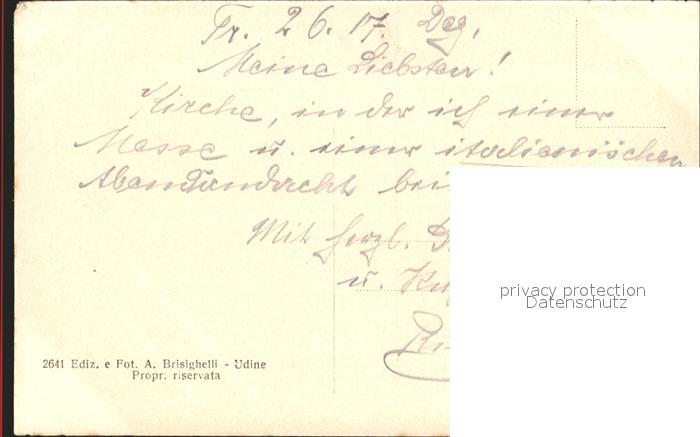 Fr. 26. 17. Dez.
Meine Liebsten!
Kirche, in der ich einer
Messe u. einer italienischen
Abendandacht bei
Mit herzl.
u.
privacy protection
Datenschutz
2641 Ediz. e Fot. A. Brisighelli - Udine
Propr. riservata